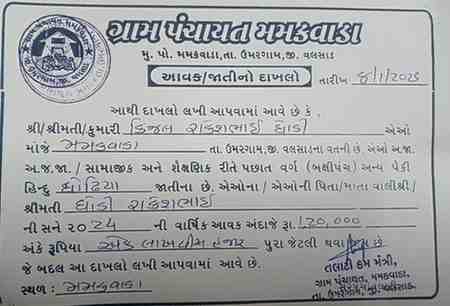 ગ્રામ પંચાયત મમકવાડા
મુ. પો. મમકવાડા, તા. ઉમરગામ, જી. વલસાડ
આવક/જાતીનો દાખલો તારીખ ૪/૧/2025
આથી દાખલો લખી આપવામાં આવે છે કે,
શ્રી/શ્રીમતી/કુમારી કિંજલ રાકેશભાઈ ધોડી એઓ
મોજે મમકવાડા તા. ઉમરગામ, જી. વલસાડના વતની છે. એઓ અ.જા.
અ.જ.જા. / સામાજીક અને શૈક્ષણિક રીતે પછાત વર્ગ (બક્ષીપંચ) અન્ય પૈકી
હિન્દુ ધોડિયા જાતીના છે. એઓના / એઓની પિતા/માતા વાલીશ્રી/
શ્રીમતી ધોડી રાકેશભાઈ
ની સને ૨૦24 ની વાર્ષિક આવક અંદાજે રૂા. 120,000
અંકે રૂપિયા એક લાખ વીસ હજાર પુરા જેટલી થવા છે
જે બદલ આ દાખલો લખી આપવામાં આવે છે.
તલાટી કમ મંત્રી,
ગ્રામ પંચાયત, મમકવાડા,
સ્થળ : મમકવાડા તા. ઉમરગામ, જી. વલસાડ.